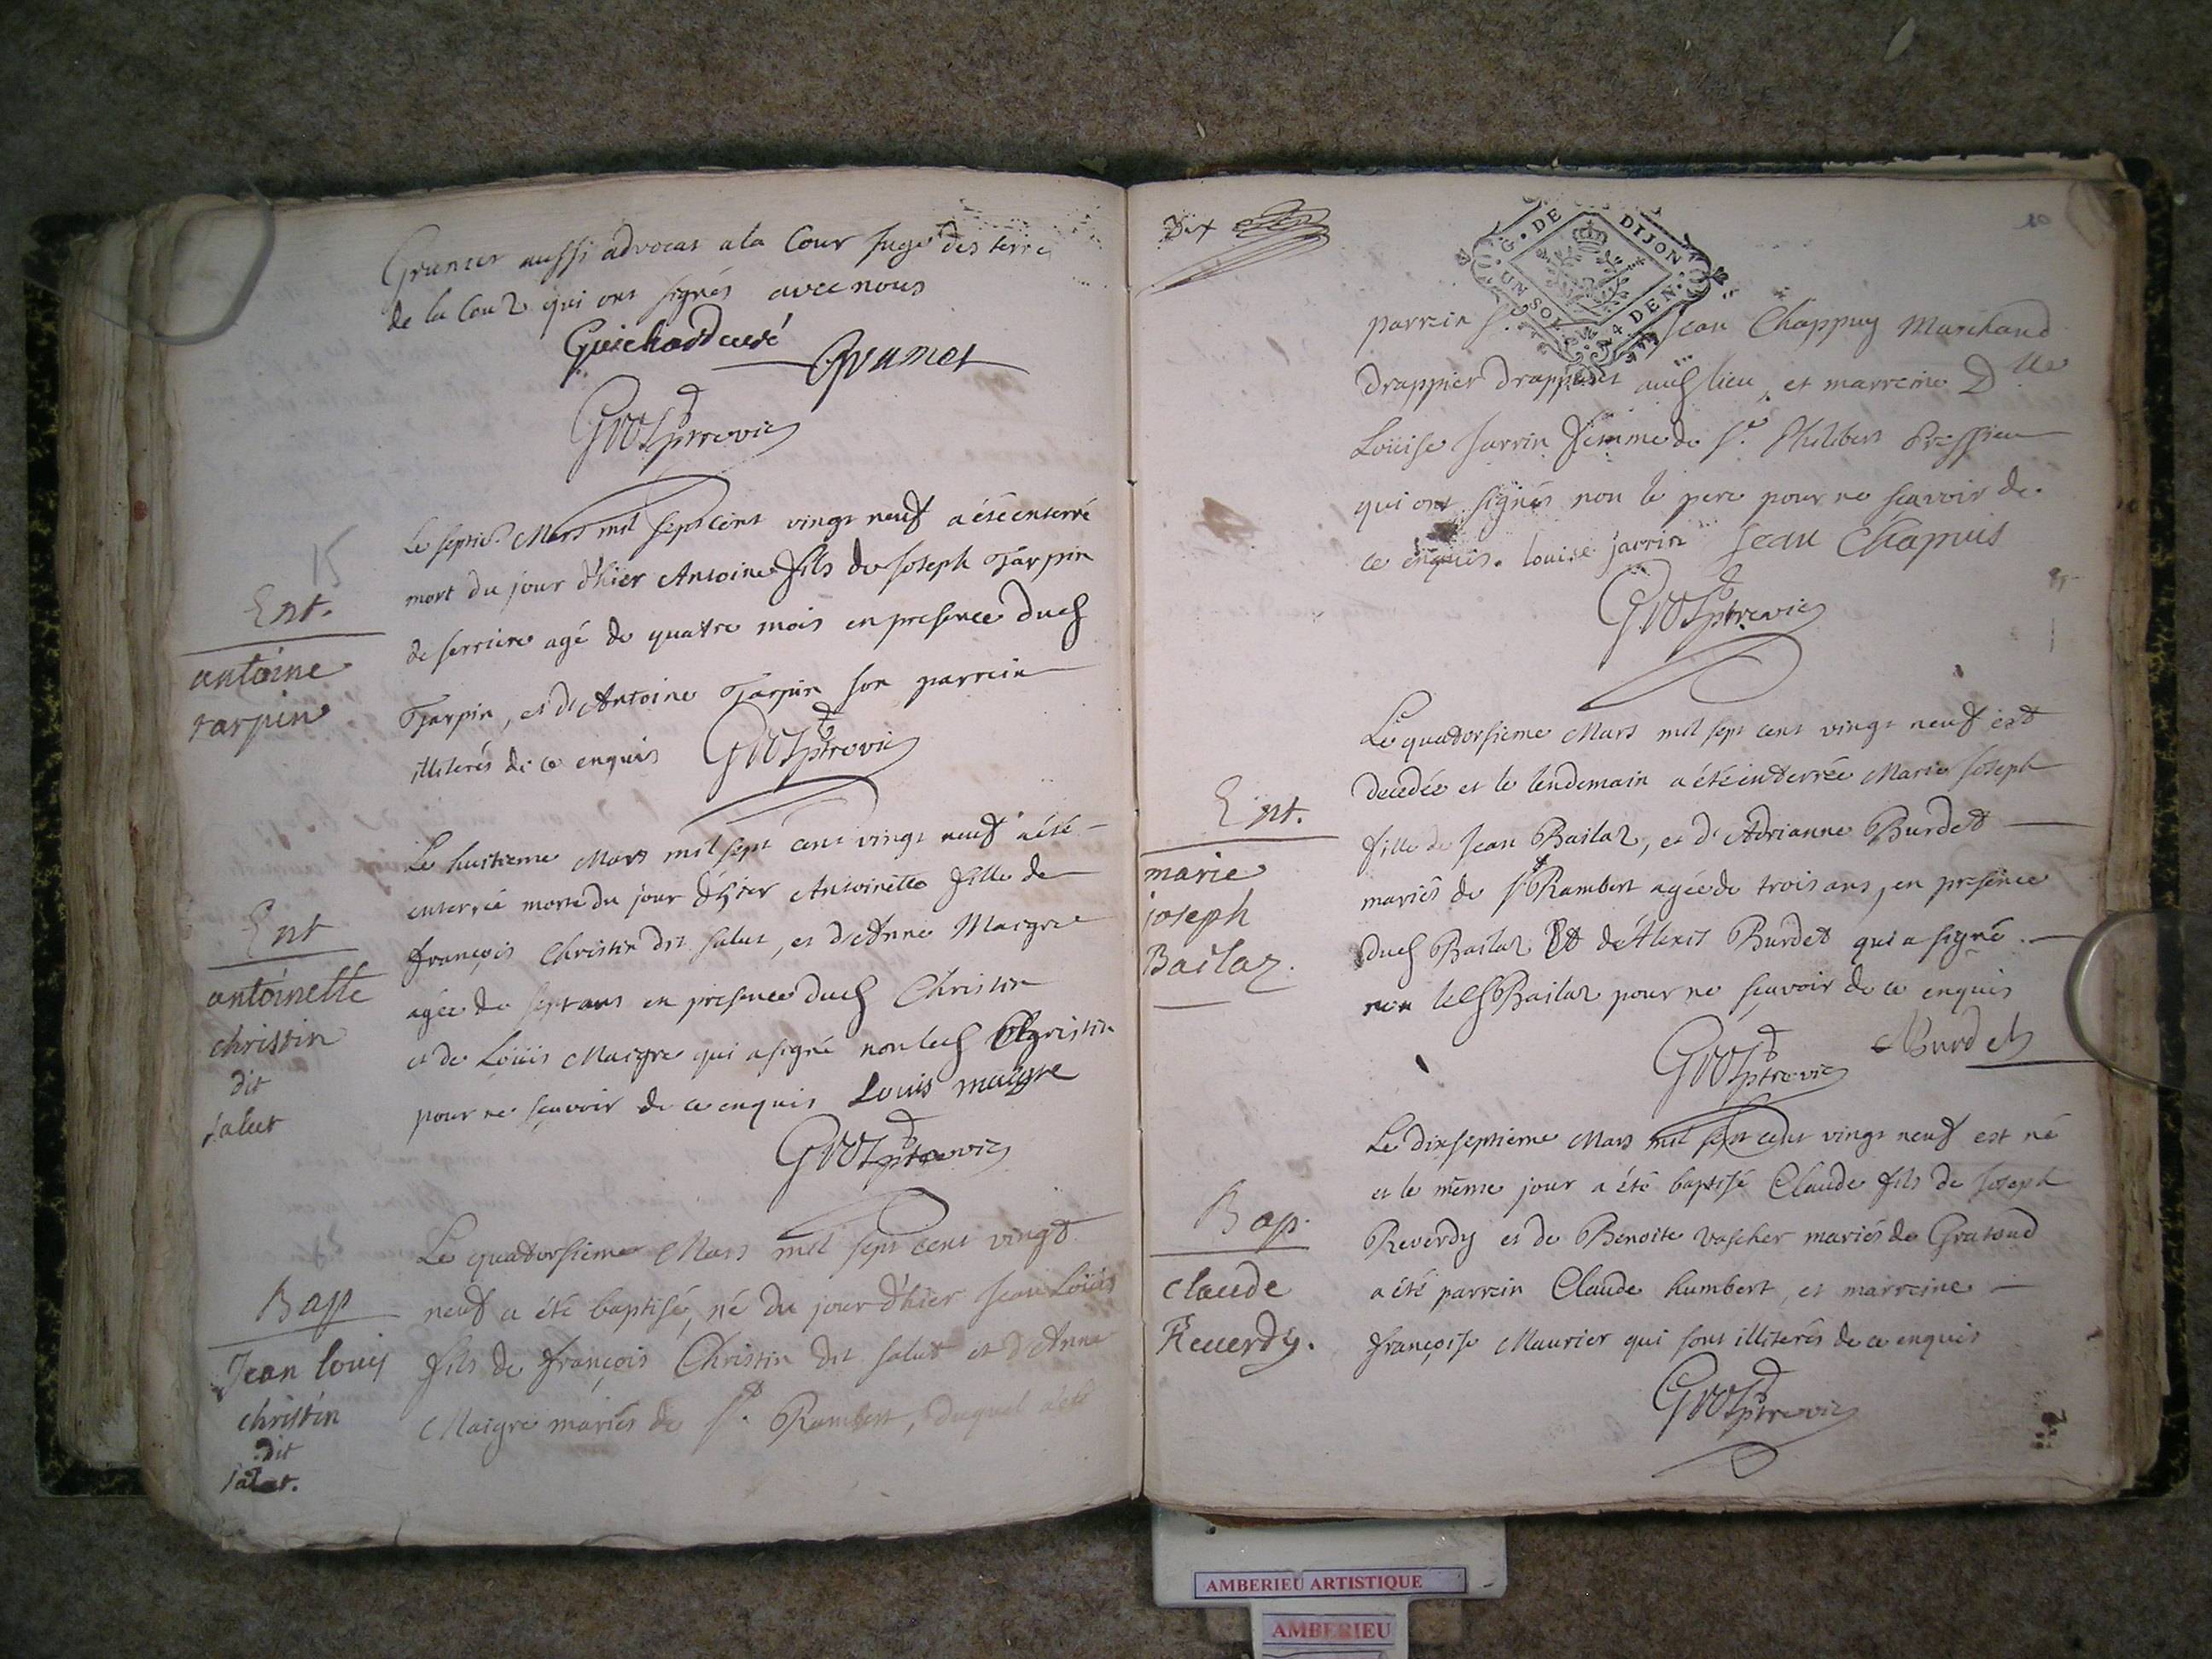 Grumet aussi advocat a la Cour juge des terre
de la Cour qui ont signés avec nous
Guichard curé
Grumet
Gros ptre vic
15
Le septie. Mars mil sept cent vingt neuf a été enterré
mort du jour d'hier Antoine fils de Joseph Tarpin
de serriere agé de quatre mois en presence dud
Tarpin, et d'Antoine Tarpin son parrein
illiterés de ce enquis
Gros ptre vic
Ent.
antoine
tarpin
Le huitieme Mars mil sept cent vingt neuf a été
enterrée morte du jour d'hier Antoinette fille de
françois Christin dit salut, et d'Anne Maigre
agée de sept ans en presence dud Christin
et de Loüis Maigre qui a signé non led Christin
pour ne sçavoir de ce enquis Louis maigre
Gros ptre vic
Ent
antoinette
christin
dit
salut
Le quatorsieme Mars mil sept cent vingt
neuf a été baptisé, né du jour d'hier Jean Loüis
fils de françois Christin dit salut et d'Anne
Maigre mariés de St. Rambert, duquel a été
Bap
Jean louis
christin
dit
salut.
Dix
10
G. DE DIJON
UN SOL 4 DEN.
parrein Sr. Jean Chappuy Marchand
drappier drappant aud lieu, et marreine Dlle
Loüise Jarrin femme de Sr. Philibert Bressieu
qui ont signés non le pere pour ne scavoir de
ce enquis. louise jarrin Jean Chapuis
Gros ptre vic
Le quatorsieme Mars mil sept cent vingt neuf est
decedée et le lendemain a été enterrée Marie Joseph
fille de Jean Bailaz, et d'Adrianne Burdet
mariés de St Rambert agée de trois ans, en presence
dud Bailaz Et d'Alexis Burdet qui a signé
non led Bailaz pour ne sçavoir de ce enquis
Gros ptre vic
ABurdet
Ent.
marie
joseph
Bailaz.
Le dix septieme Mars mil sept cent vingt neuf est né
et le même jour a été baptisé Claude fils de Joseph
Reverdy et de Benoite vascher mariés de Gratoud
a été parrein Claude humbert, et marreine
françoise Maurier qui sont illiterés de ce enquis
Gros ptre vic
Bap.
claude
Reverdy.
AMBERIEU ARTISTIQUE
AMBERIEU